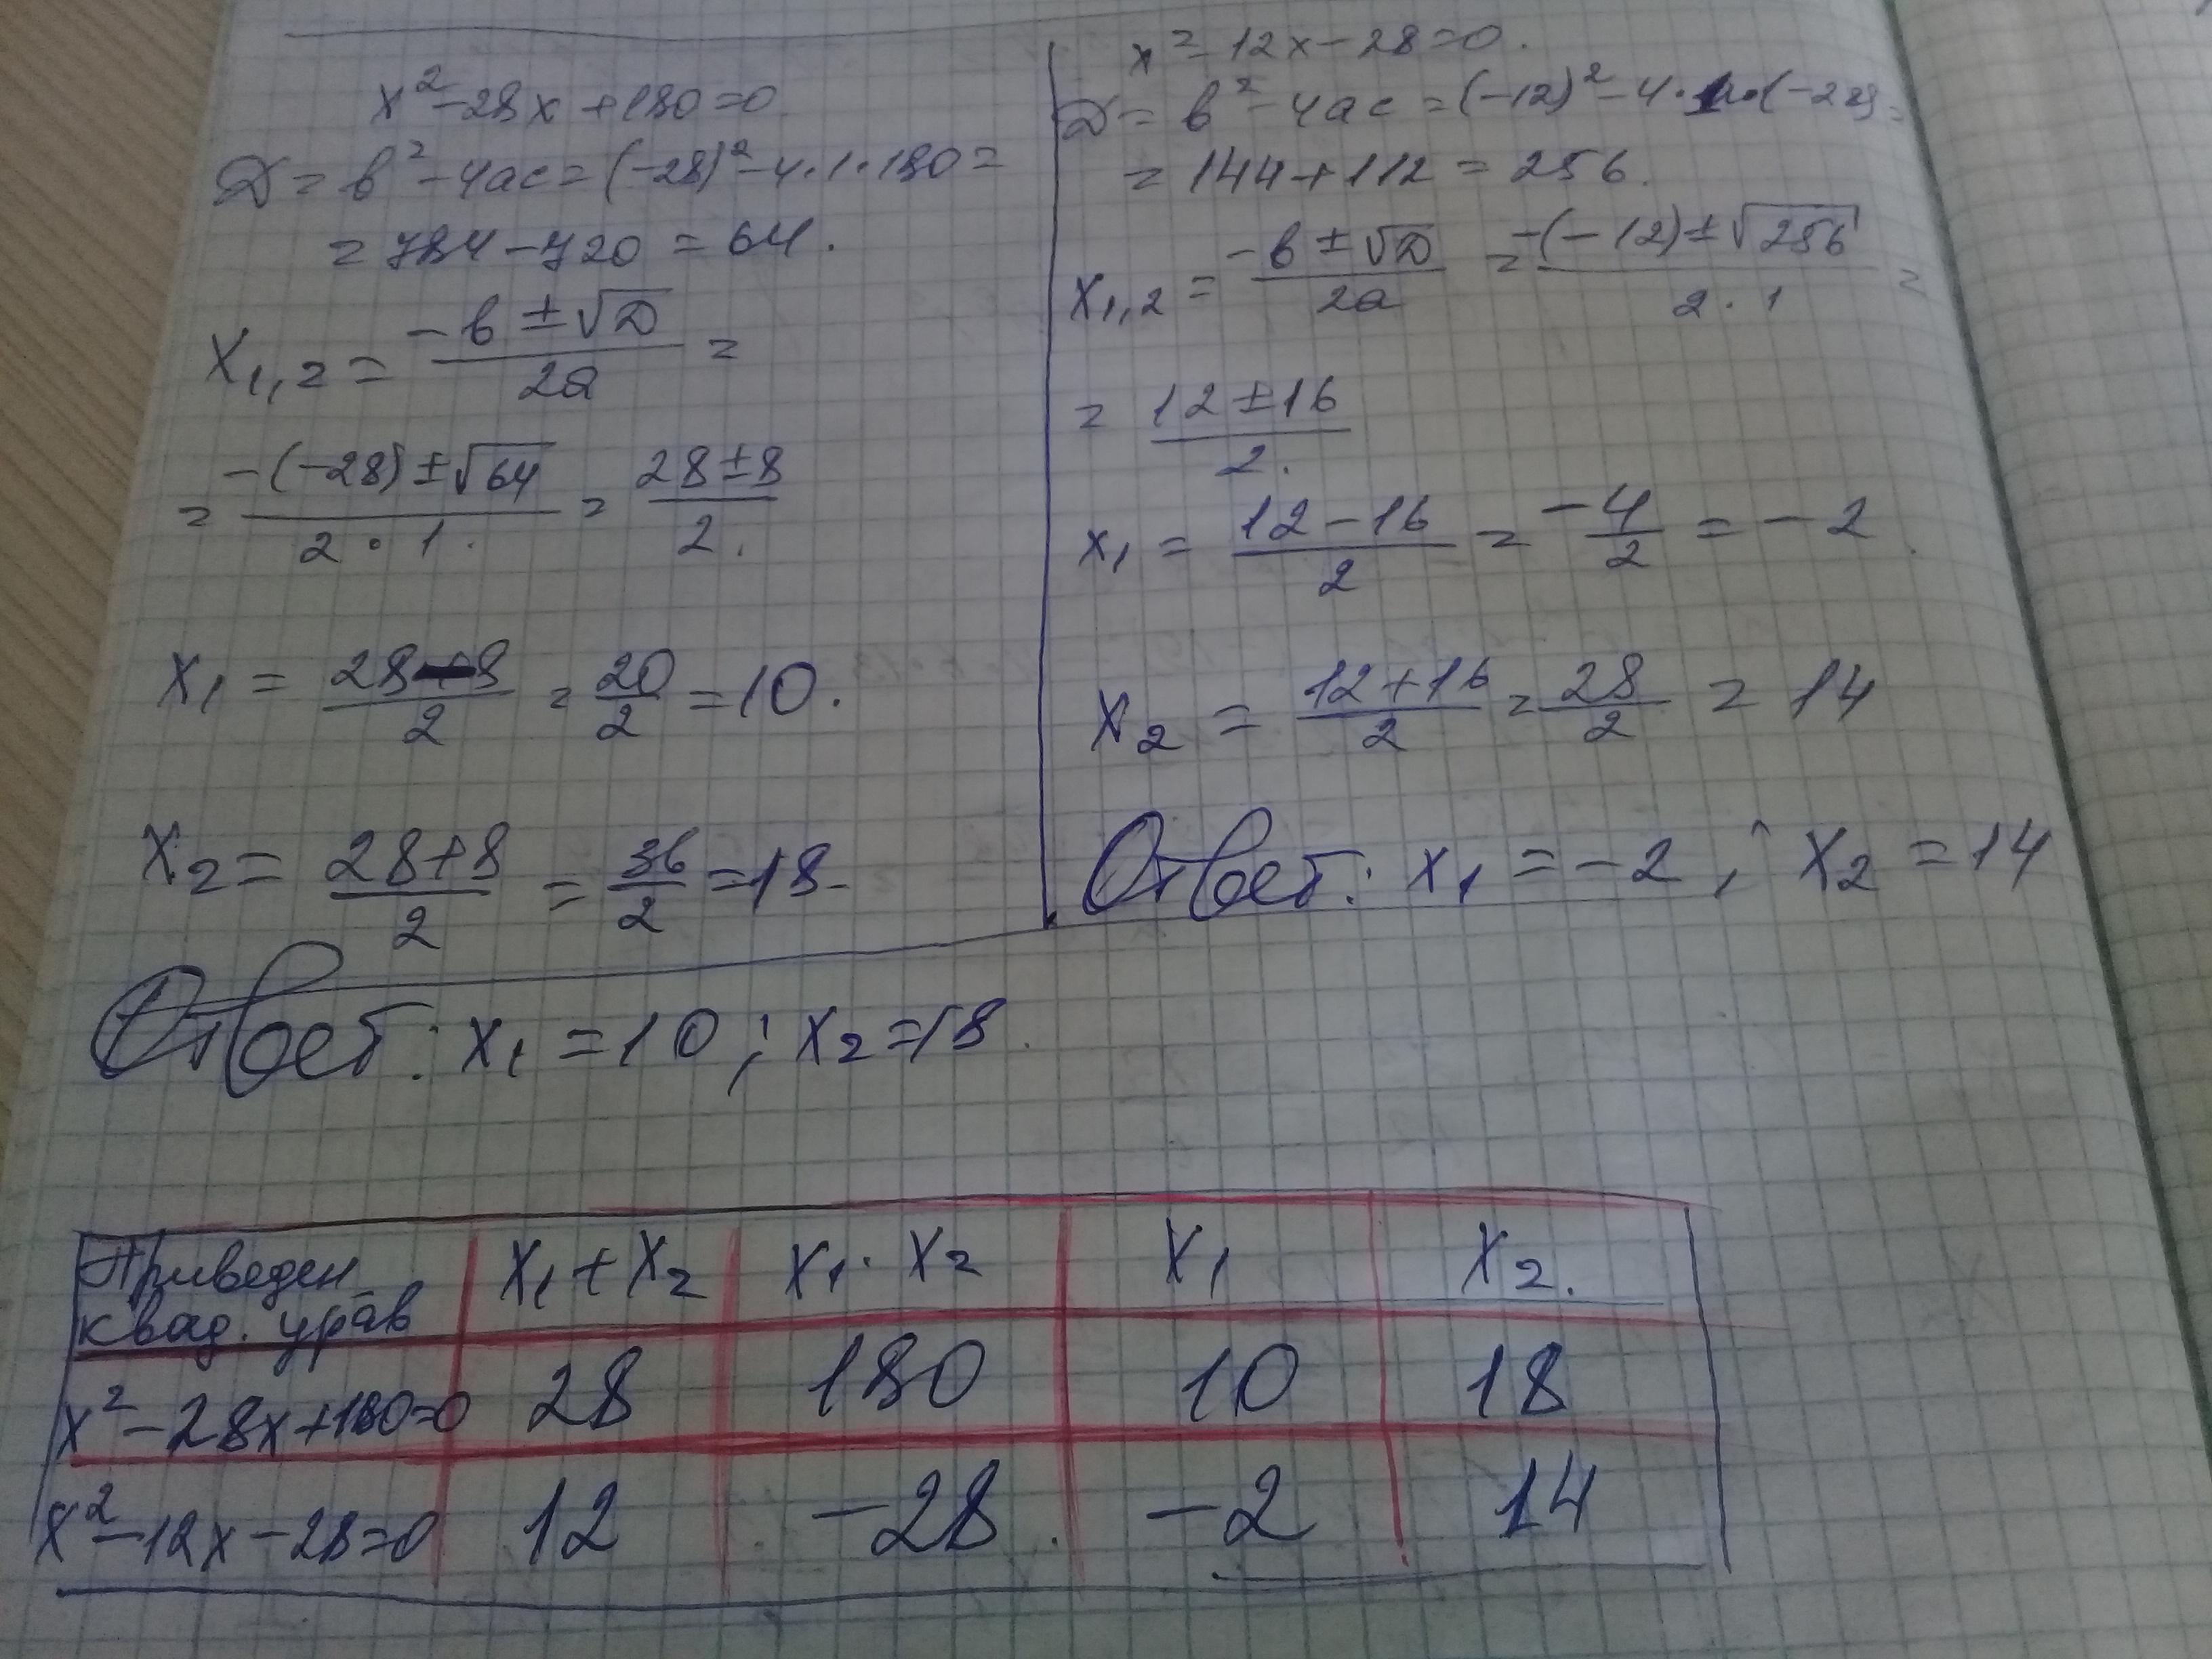 x² - 28x + 180 = 0
D = b² - 4ac = (-28)² - 4·1·180 =
= 784 - 720 = 64.
x₁,₂ = (-b ± √D)/2a =
= (-(-28) ± √64)/(2·1.) = (28 ± 8)/2.
x₁ = (28 - 8)/2 = 20/2 = 10.
x₂ = (28 + 8)/2 = 36/2 = 18
Ответ: x₁ = 10; x₂ = 18.
x² - 12x - 28 = 0.
D = b² - 4ac = (-12)² - 4·1·(-28) =
= 144 + 112 = 256.
x₁,₂ = (-b ± √D)/2a = (-(-12) ± √256)/(2·1) =
= (12 ± 16)/2.
x₁ = (12 - 16)/2 = -4/2 = -2.
x₂ = (12 + 16)/2 = 28/2 = 14
Ответ: x₁ = -2; x₂ = 14
Приведен квад. урав x₁ + x₂ x₁ · x₂ x₁ x₂.
x² - 28x + 180 = 0 28 180 10 18
x² - 12x - 28 = 0 12 -28 -2 14